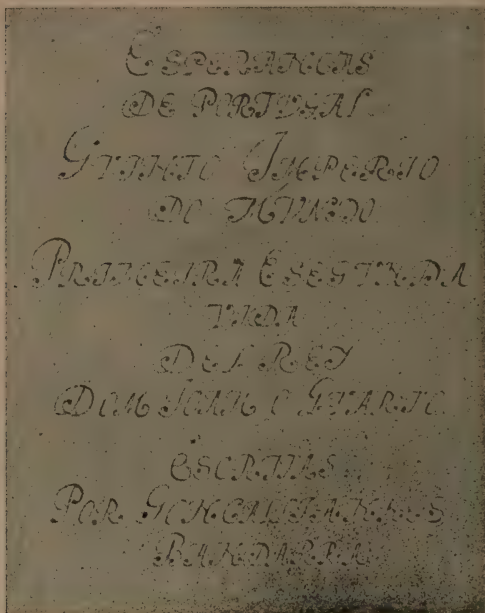 ESPERANCAS
DE PORTVGAL
QVINTO IMPERIO
DO MVNDO
PRIMEIRA E SEGVNDA
VIDA
DEL REY
DOM IOAM O QVARTO
ESCRITAS
POR GONCALIANNES
BANDARRA